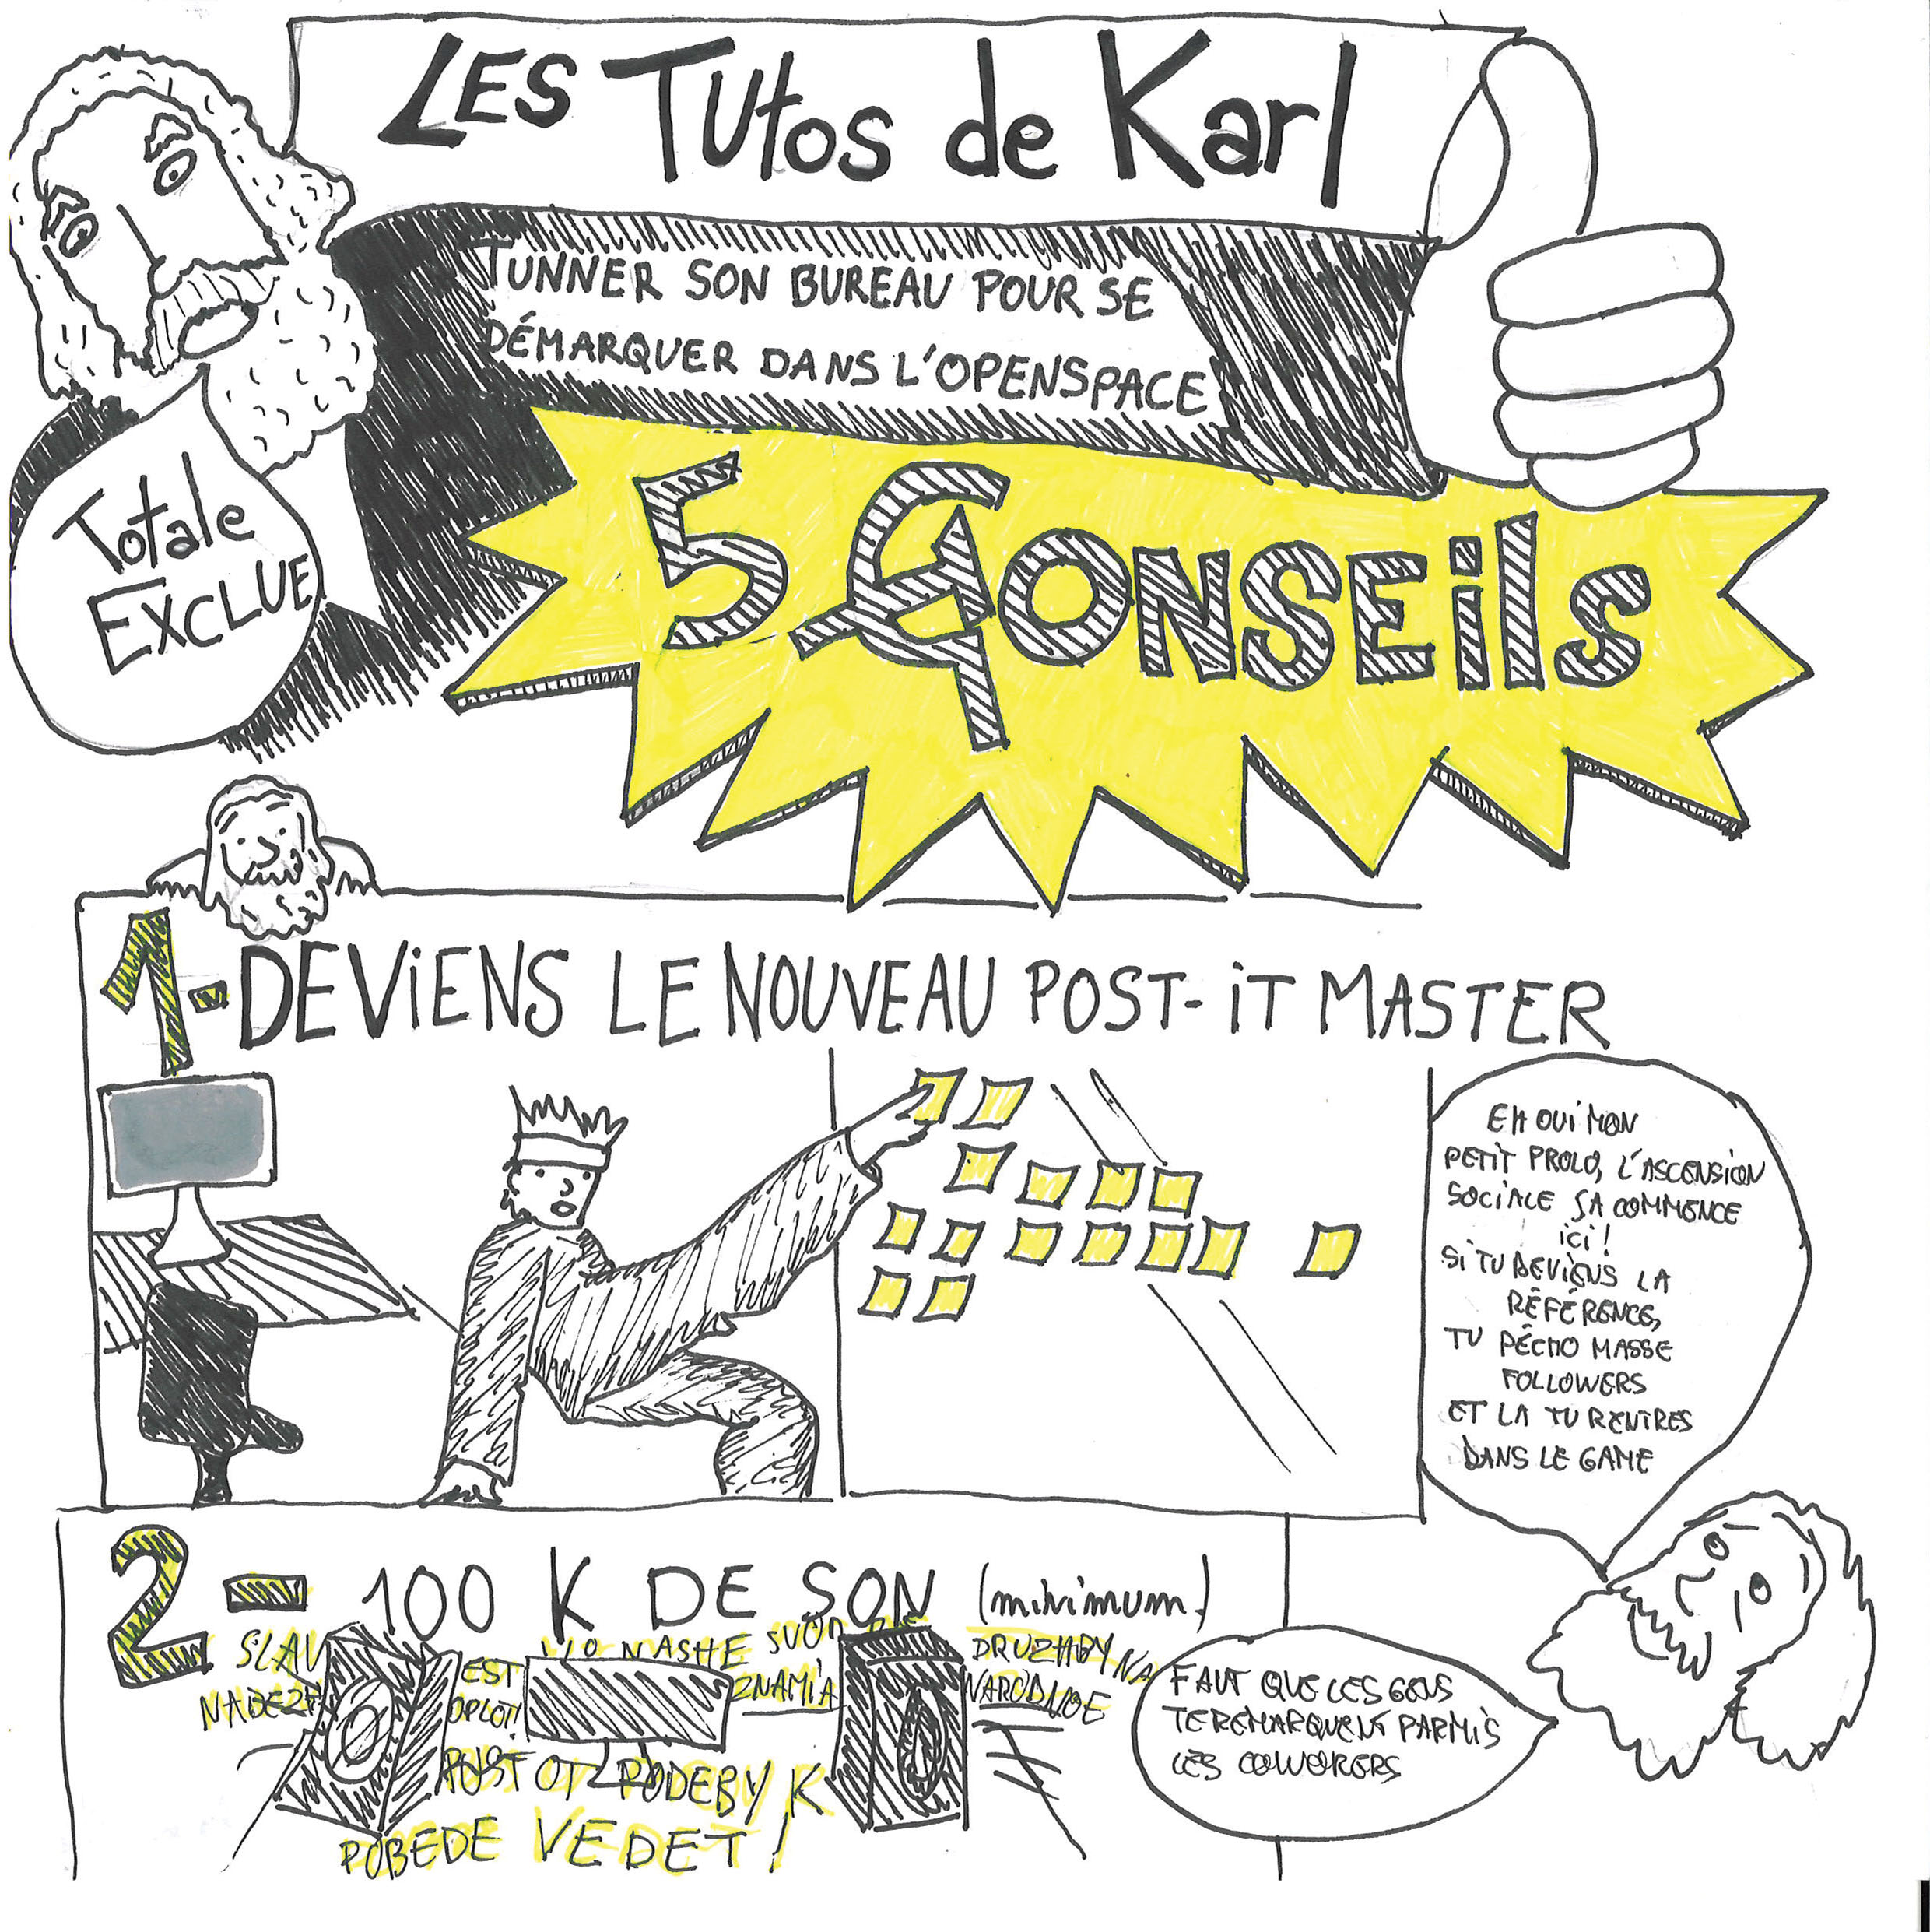 LES TUtos de Karl
TUNNER SON BUREAU POUR SE
DÉMARQUER DANS L'OPENSPACE
Totale
EXCLUE
5 CONSEILS
1- DEVIENS LE NOUVEAU POST-IT MASTER
EH OUI MON
PETIT PROLO, L'ASCENSION
SOCIALE SA COMMENCE
ICI !
SI TU DEVIENS LA
RÉFÉRENCE,
TU PÉCHO MASSE
FOLLOWERS
ET LA TU RENTRES
DANS LE GAME
2- 100 K DE SON (minimum)
SLAV
NASHE SVO
DRUZHBY NA
NADEZH
EST
OPLOT!
ZNAMIA
NARODNOE
PUST OT PODEBY K
POBEDE VEDET !
FAUT QUE LES GENS
TE REMARQUENT PARMIS
LES COWORKERS